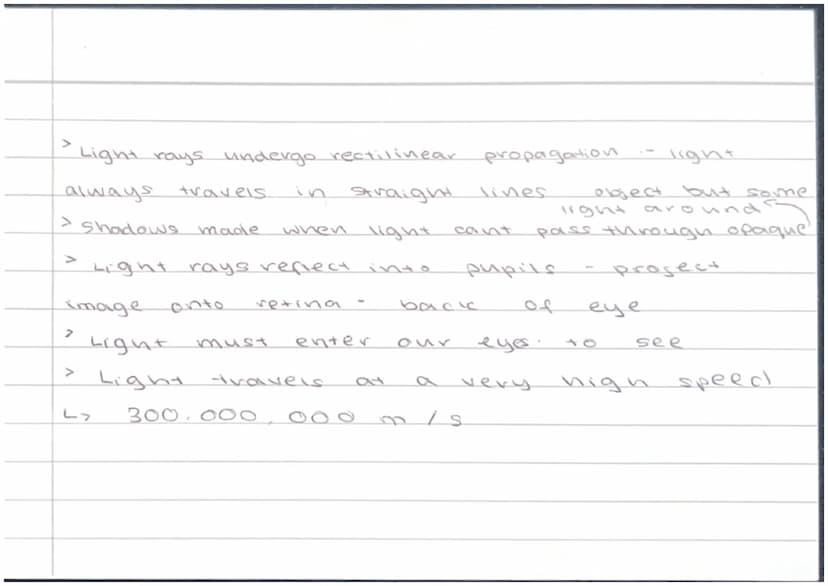 > Light rays undergo rectilinear propagation - light
always travels in straight lines
> Shadows made when light cant pass through opaque
object but some
light around
> Light rays reflect into pupils - project
image onto retina - back of eye
> Light must enter our eyes to see
> Light travels at a very high speed
↳ 300.000.000 m/s